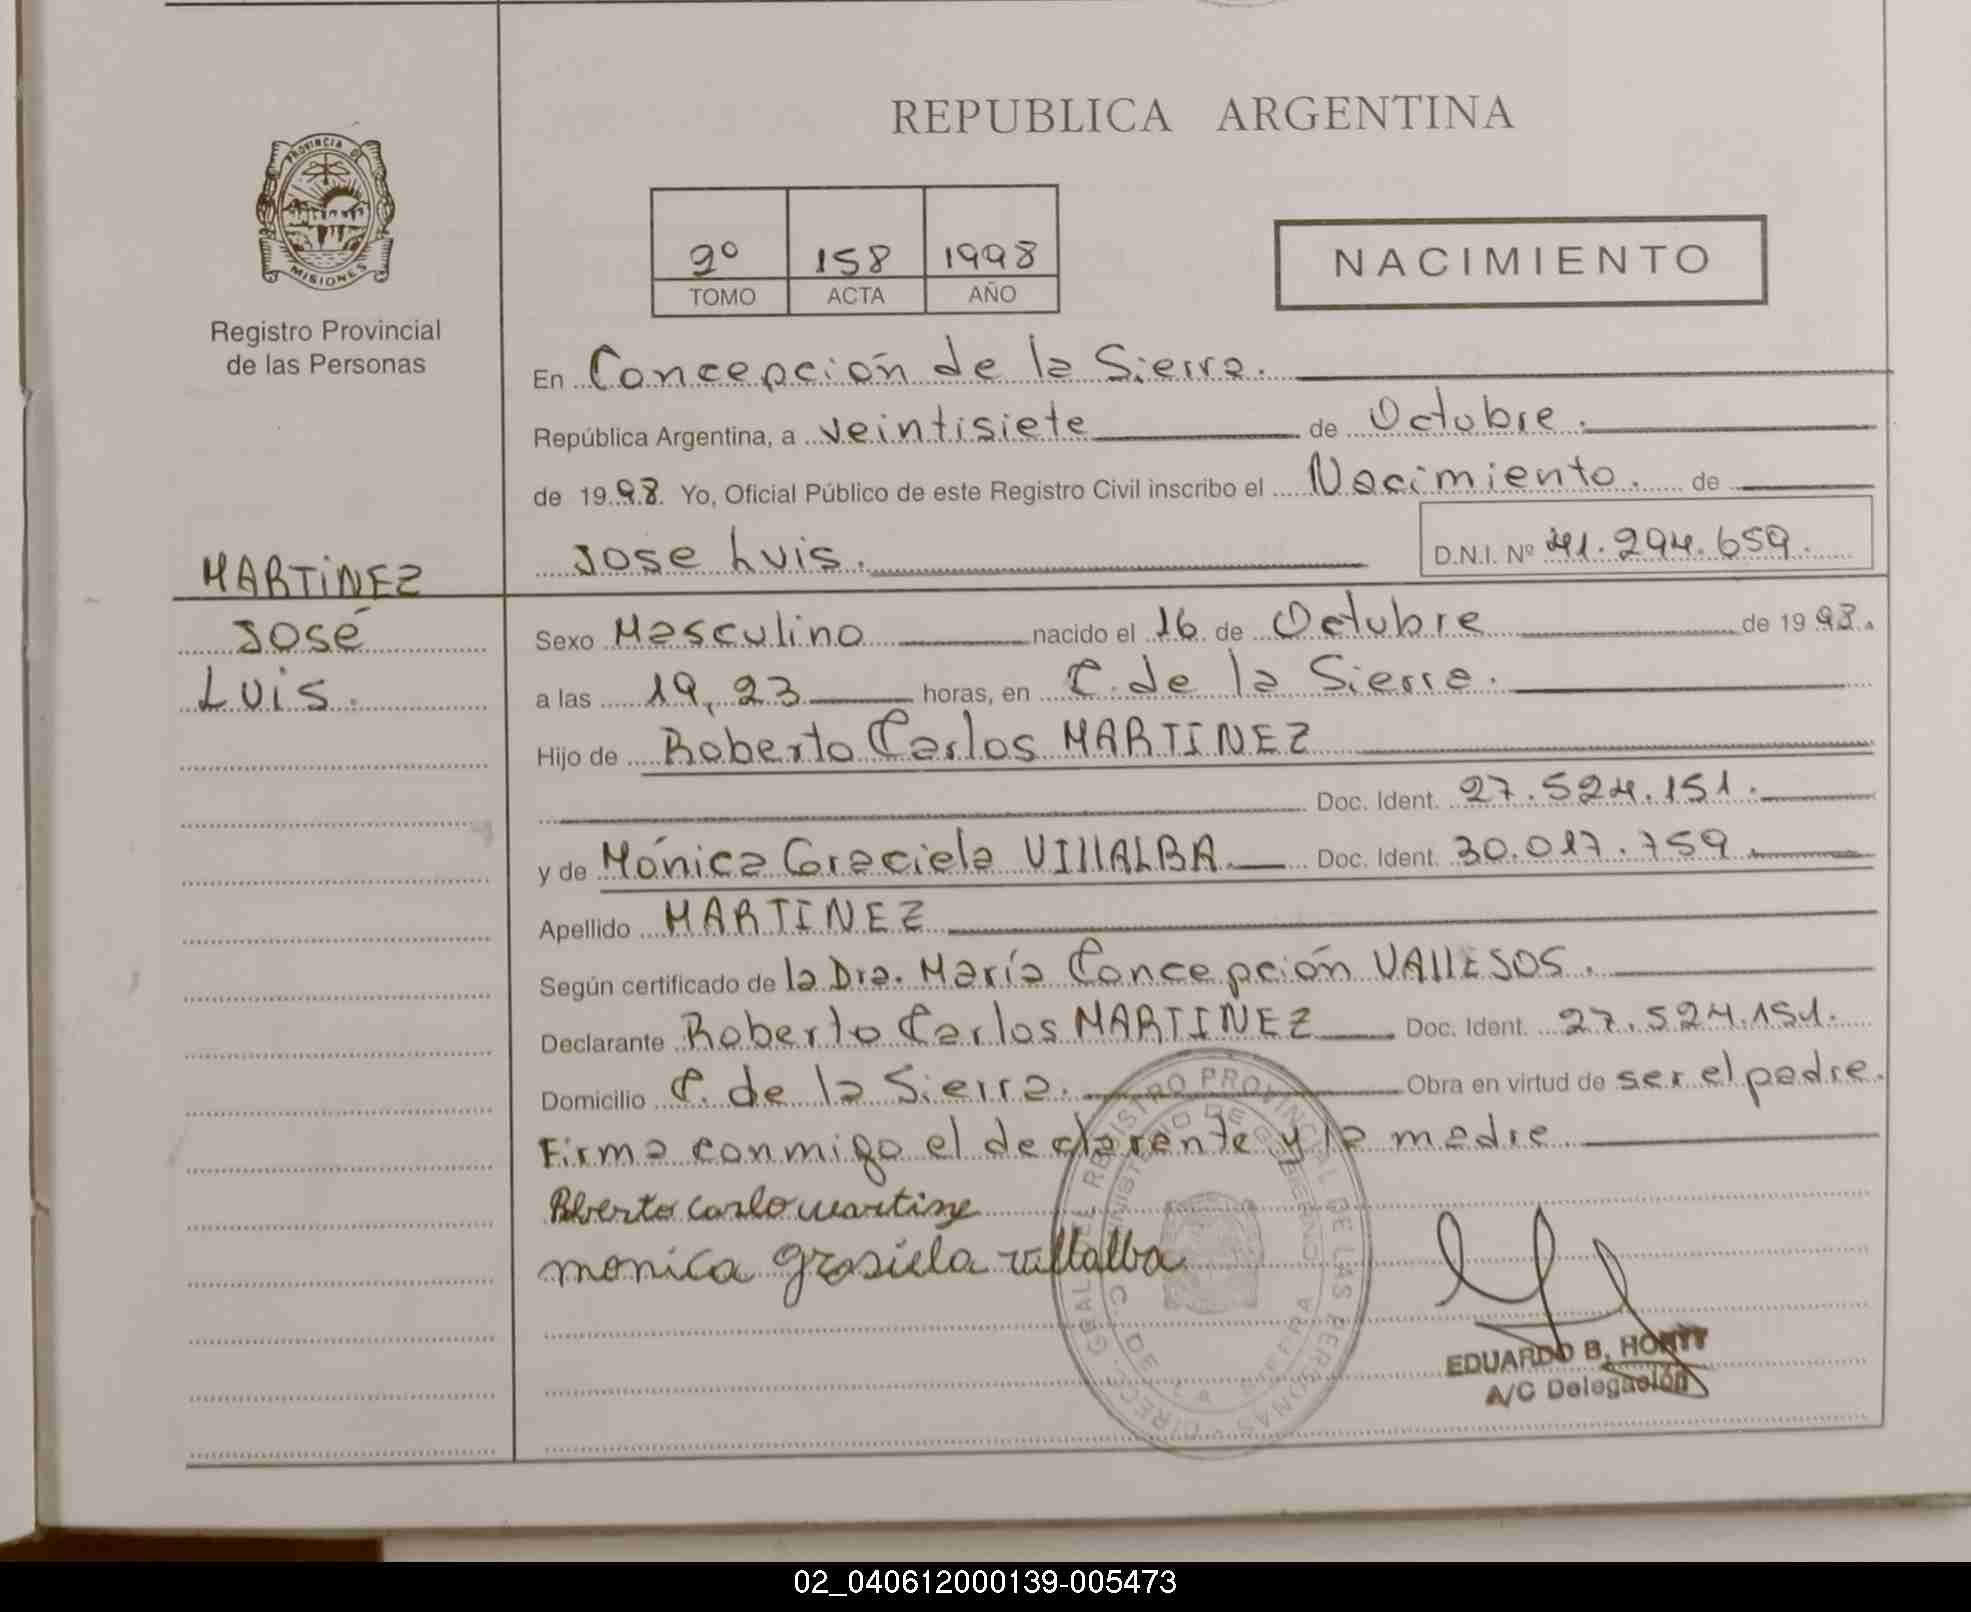 REPUBLICA ARGENTINA
PROVINCIA DE MISIONES
Registro Provincial
de las Personas
2º 158 1998
TOMO ACTA AÑO
NACIMIENTO
En Concepción de la Sierra.
República Argentina, a veintisiete de Octubre.
de 1998. Yo, Oficial Público de este Registro Civil inscribo el Nacimiento. de
Jose Luis. D.N.I. Nº 41.294.659.
MARTINEZ
José
Luis.
Sexo Masculino nacido el 16 de Octubre de 1998.
a las 19,23 horas, en C. de la Sierra.
Hijo de Roberto Carlos MARTINEZ
Doc. Ident. 27.524.151.
y de Mónica Graciela VIllALBA Doc. Ident. 30.017.759
Apellido MARTINEZ
Según certificado de la Dra. María Concepción VAllESOS.
Declarante Roberto Carlos MARTINEZ Doc. Ident. 27.524.151.
Domicilio C. de la Sierra. Obra en virtud de ser el padre.
Firma conmigo el declarante y la madre
Roberto Carlo martinz
monica grasiela villalba
REGISTRO PROVINCIAL DE LAS PERSONAS
MINISTERIO DE GOBIERNO
C. DE LA SIERRA
EDUARDO B.
A/C Delegación
02_040612000139-005473